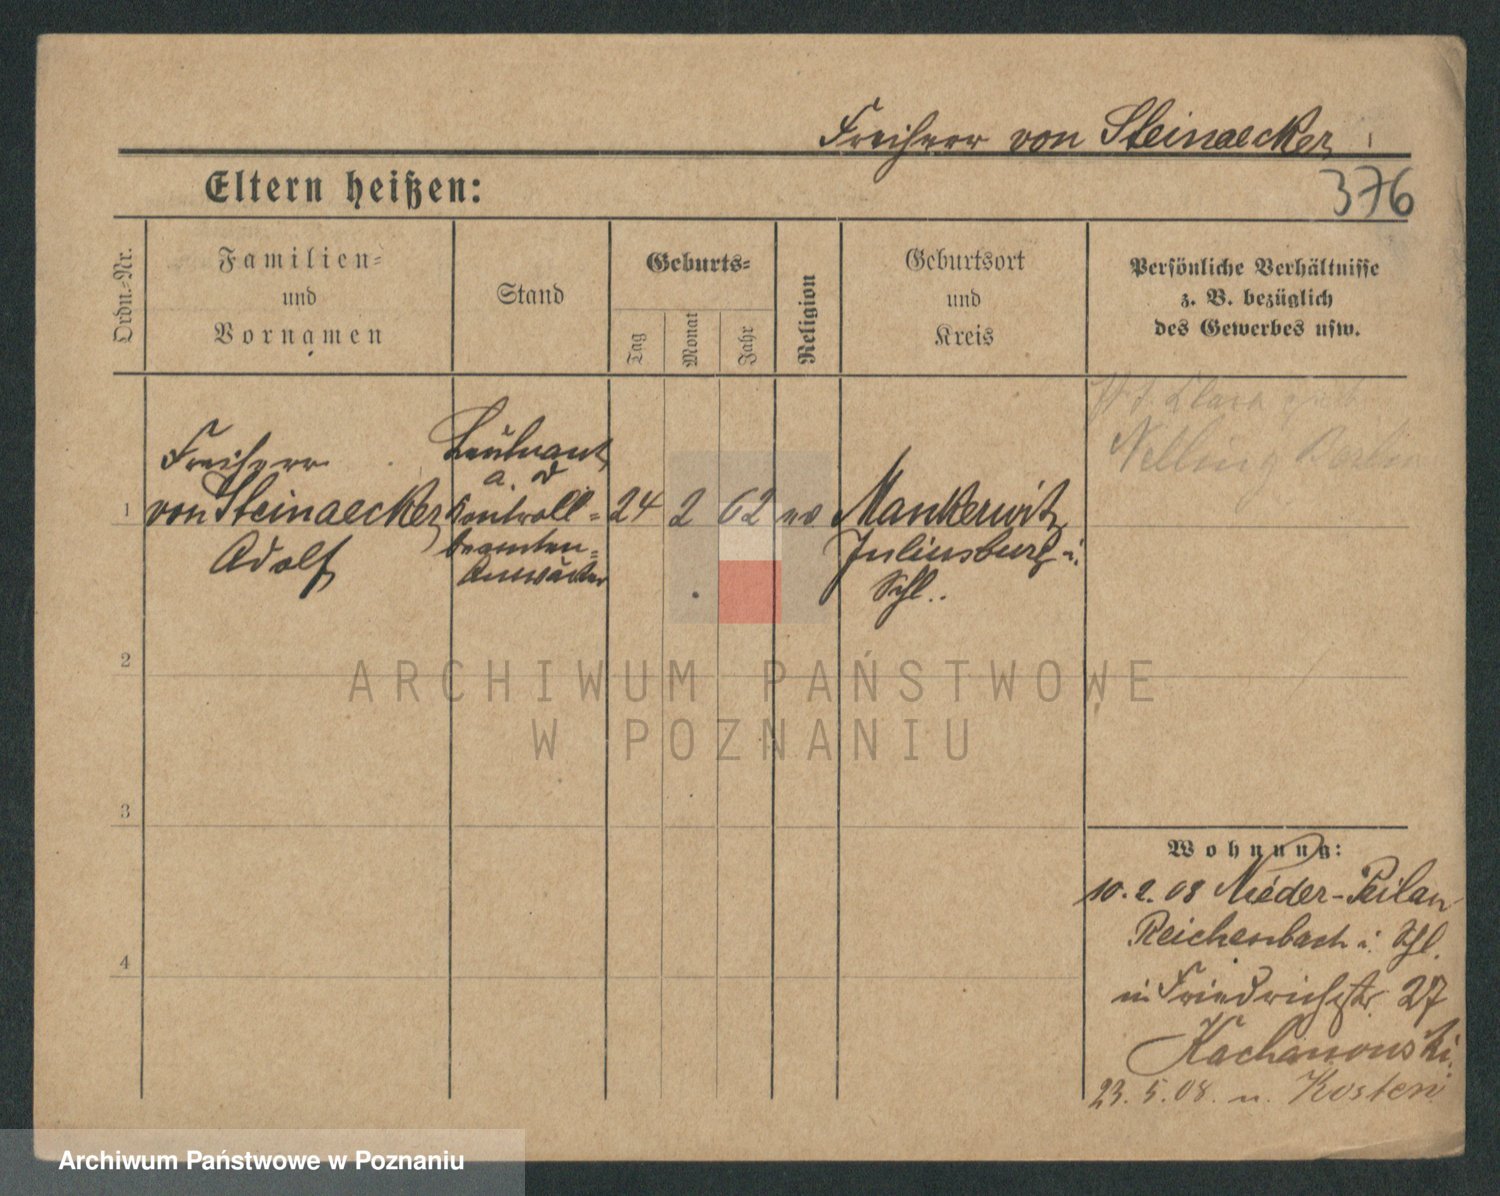 Freiherr von Steinaecker
376
Eltern heißen:
Ordn.-Nr.
Familien-
und
Vornamen
Stand
Geburts-
Tag
Monat
Jahr
Religion
Geburtsort
und
Kreis
Persönliche Verhältnisse
z. B. bezüglich
des Gewerbes usw.
1
Freiherr
von Steinaecker
Adolf
Leutnant
a. D
Kontroll-
beamten-
Anwärter
24
2
62
ev
Mankerwitz
Juliusburg i.
Schl.
Nelling Berlin
2
3
4
Wohnung:
10.2.08 Nieder-Peilau
Reichenbach i. Schl.
in Friedrichstr 27
Kachanowski.
23.5.08. n. Kosten
ARCHIWUM PAŃSTWOWE
W POZNANIU
Archiwum Państwowe w Poznaniu